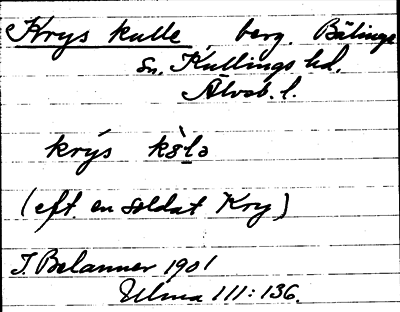 Krys kulle, berg. Bälinge
sn. Kullings hd.
Älvsb. l.
krýs
(eft. en soldat Kry)
J. Belanner 1901
Ulma 111:136.